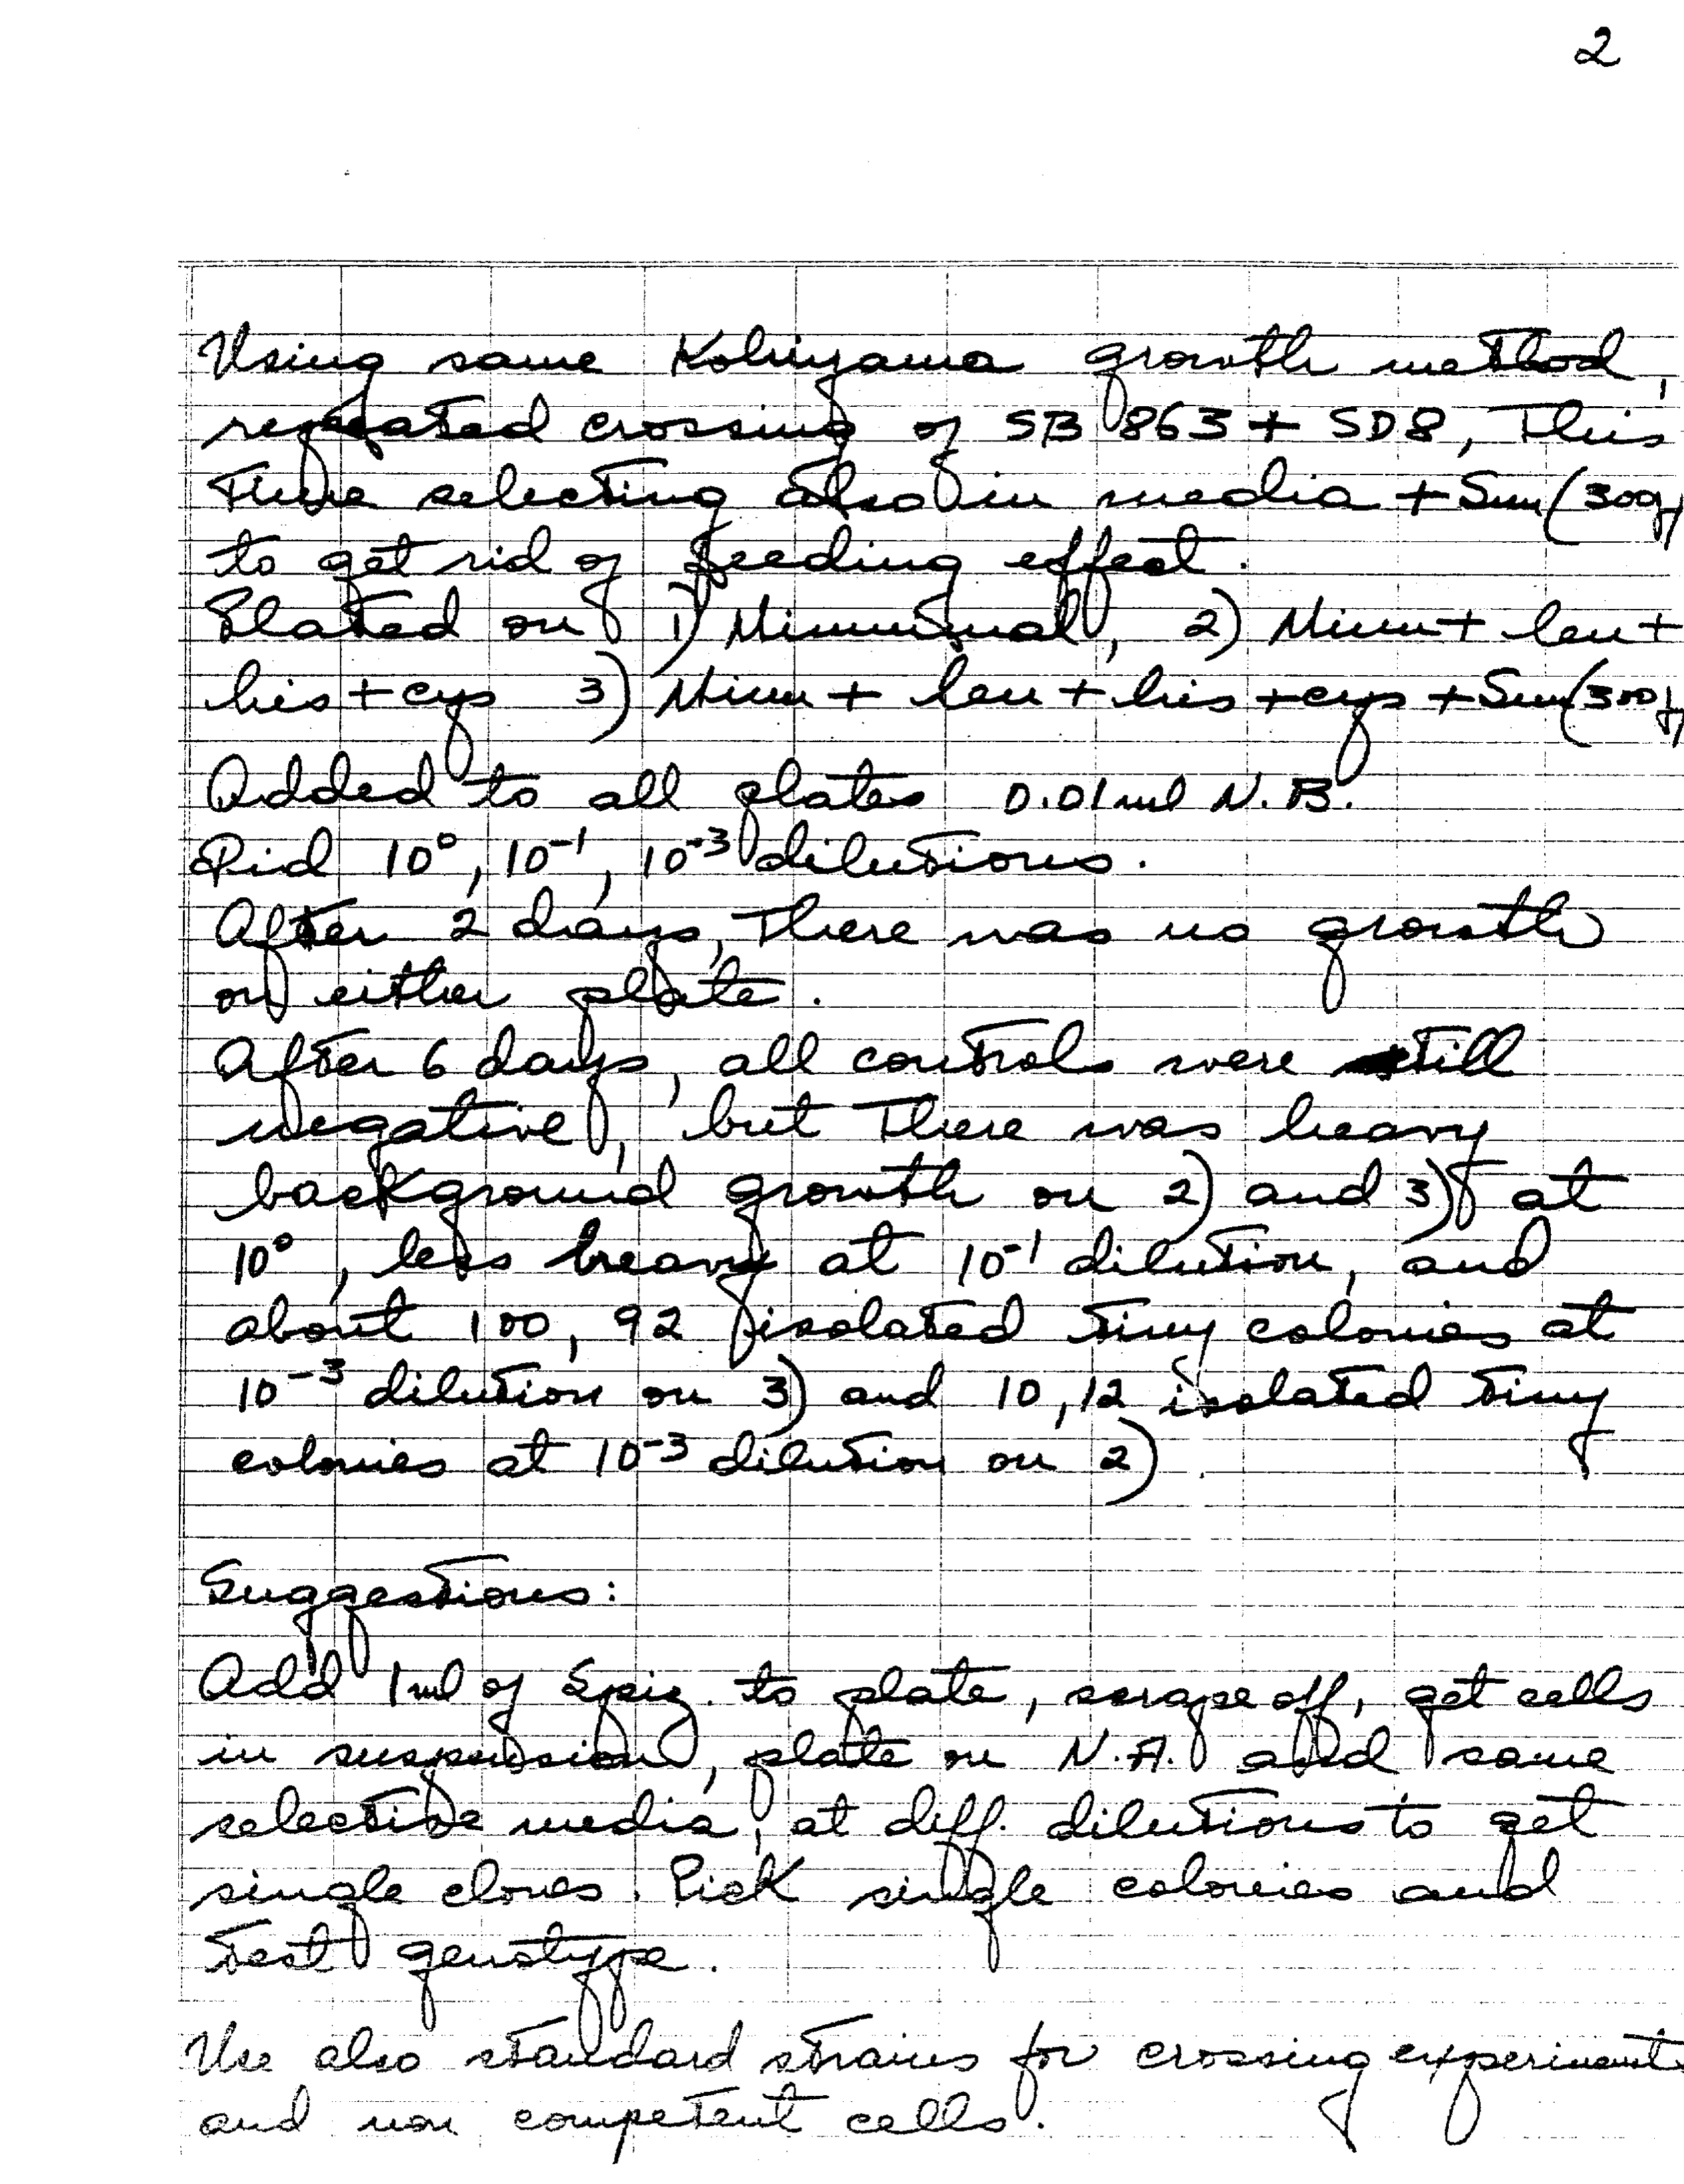 2
Using same Kohiyama growth method,
repeated crossing of SB 863 + SD8, This
Time selecting also in media + Sm (300
to get rid of feeding effect.
Plated on 1) Minimal, 2) Minm + leu +
his + cys 3) Minm + leu + his + cys + Sm (300
Added to all plates 0.01 ml N.B.
Did 10⁰, 10⁻¹, 10⁻³ dilutions.
After 2 days, There was no growth
on either plate.
After 6 days, all controls were still
negative, but There was heavy
background growth on 2) and 3) at
10⁰, less heavy at 10⁻¹ dilution, and
about 100, 92 isolated tiny colonies at
10⁻³ dilution on 3) and 10, 12 isolated tiny
colonies at 10⁻³ dilution on 2)
Suggestions:
Add 1 ml of Spiz. to plate, scrape off, get cells
in suspension, plate on N.A. and same
selective media, at diff. dilutions to get
single clones. Pick single colonies and
test genotype.
Use also standard strains for crossing experiments
and non competent cells.